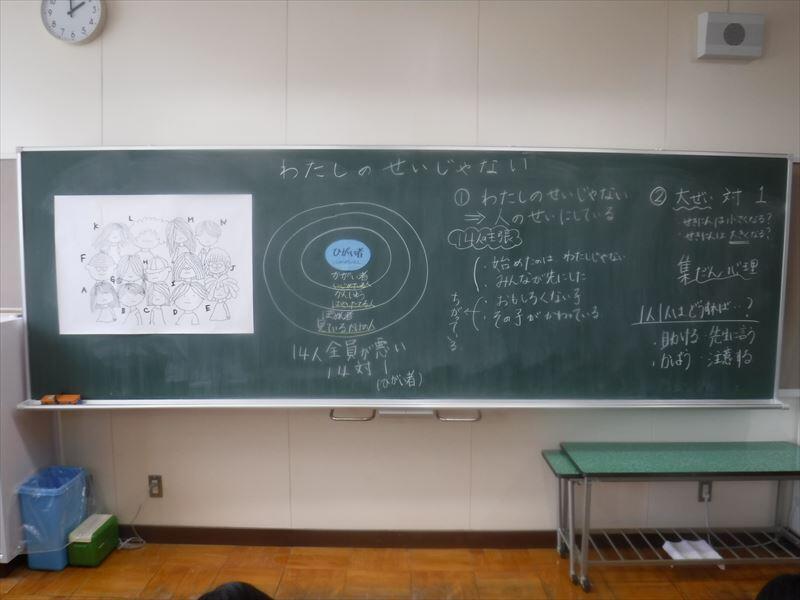 わたしのせいじゃない
K L M N
F G H I J
A B C D E
ひがい者
かがい者
かんしゅう
ぼうかん者
見ているだけの人
14人全員が悪い
14対1
(ひがい者)
① わたしのせいじゃない
⇒ 人のせいにしている
14人の主張
・始めたのは わたしじゃない
・みんなが先にした
・おもしろくない子
・その子が かわっている
ちがている
② 大ぜい 対 1
・せきにんは小さくなる?
・せきにんは大きくなる?
集だん心理
1人1人はどうすれば…?
・助ける ・先生に言う
・かばう ・注意する